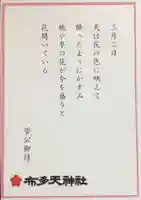 三月三日
天は花の色に映えて
酔ったようにかすみ
桃や李の花が今を盛りと
花開いている
菅公御詩
布多天神社